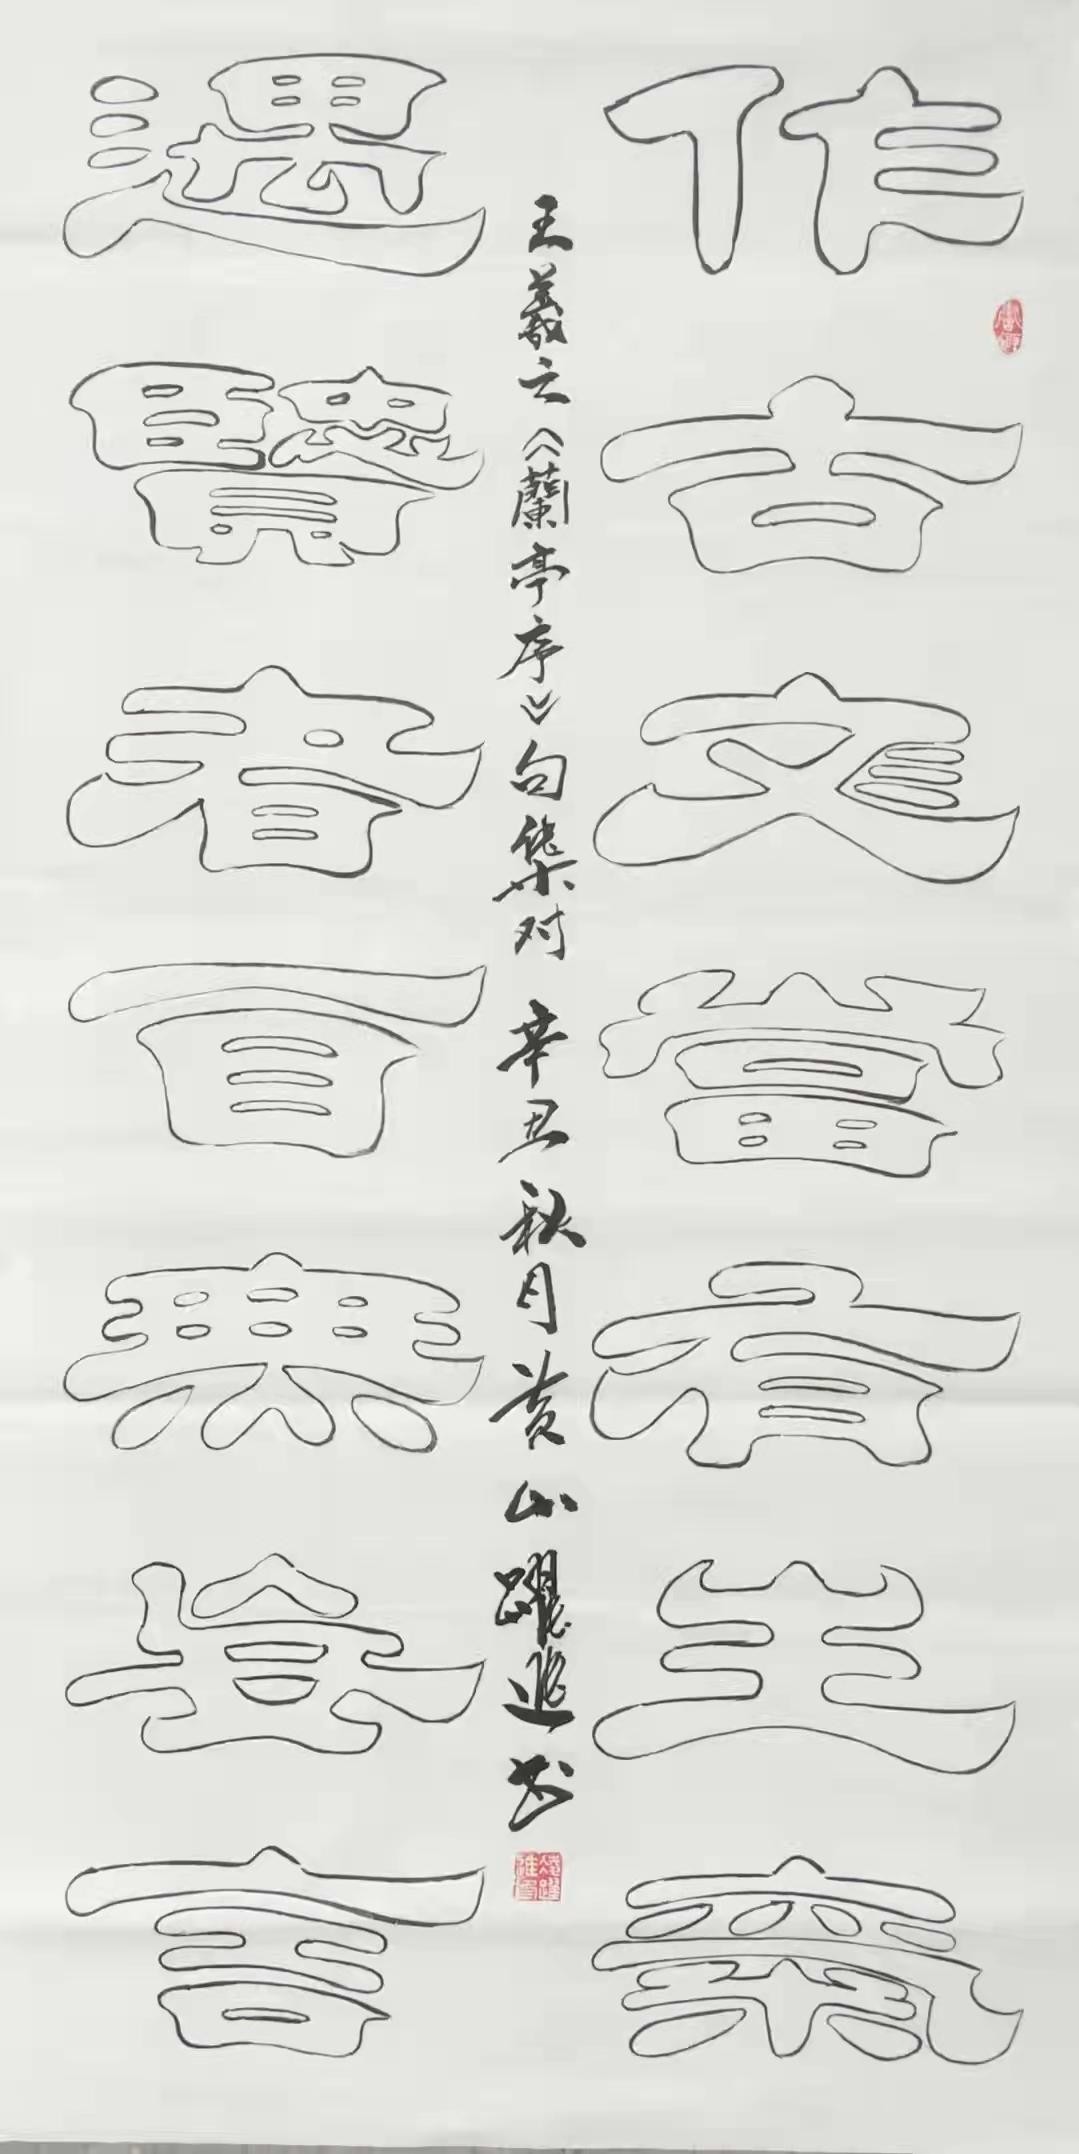 作古文當有生氣
遇賢者自無言
王羲之《蘭亭序》句集对 辛丑秋月黄山躍進书